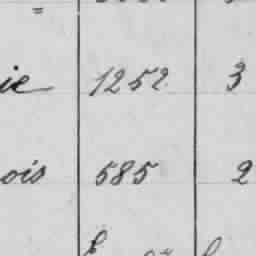 ie 1252 3
ois 585 2